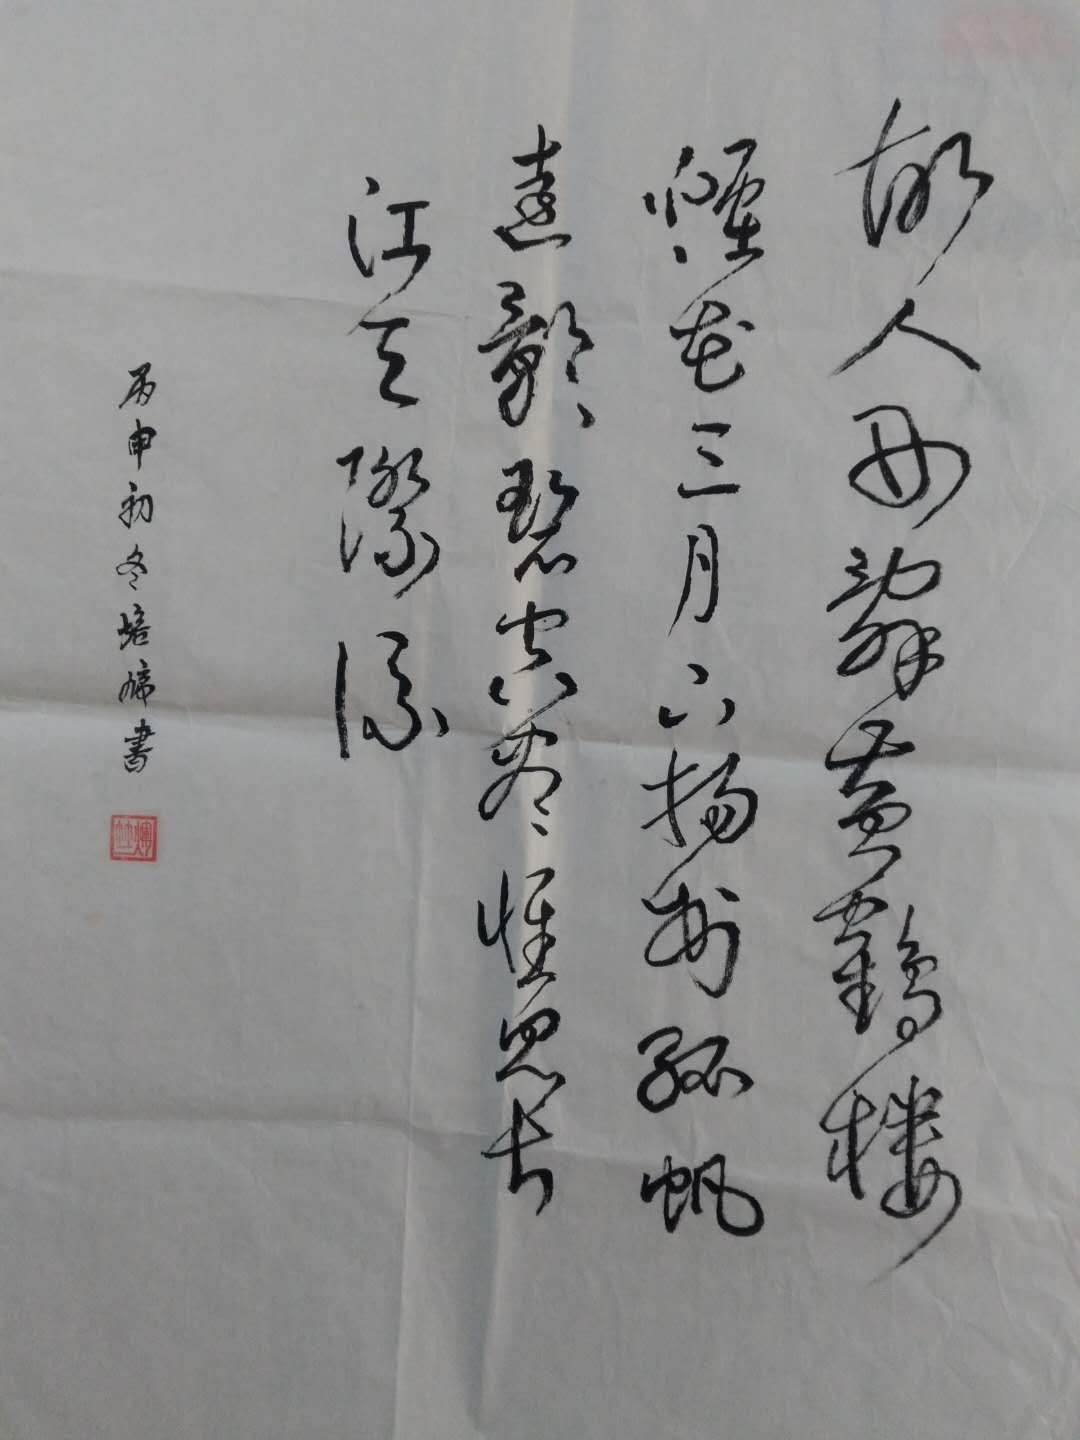 故人西辭黄鶴樓
煙花三月下揚州孤帆
遠影碧空盡惟見長
江天際流
丙申初冬培書